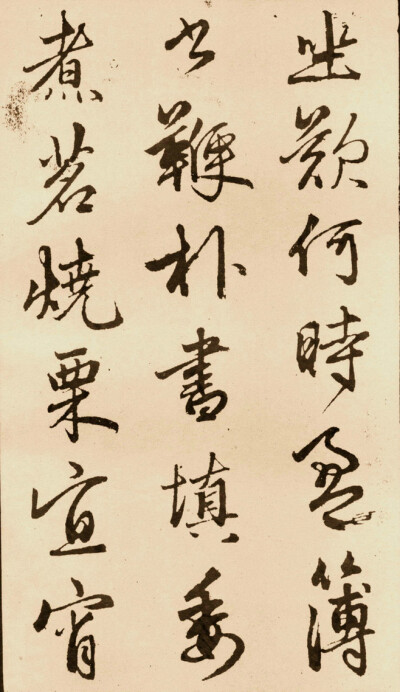 坐歎何時盈簿
書鞭朴晝填委
煮茗燒栗宜宵